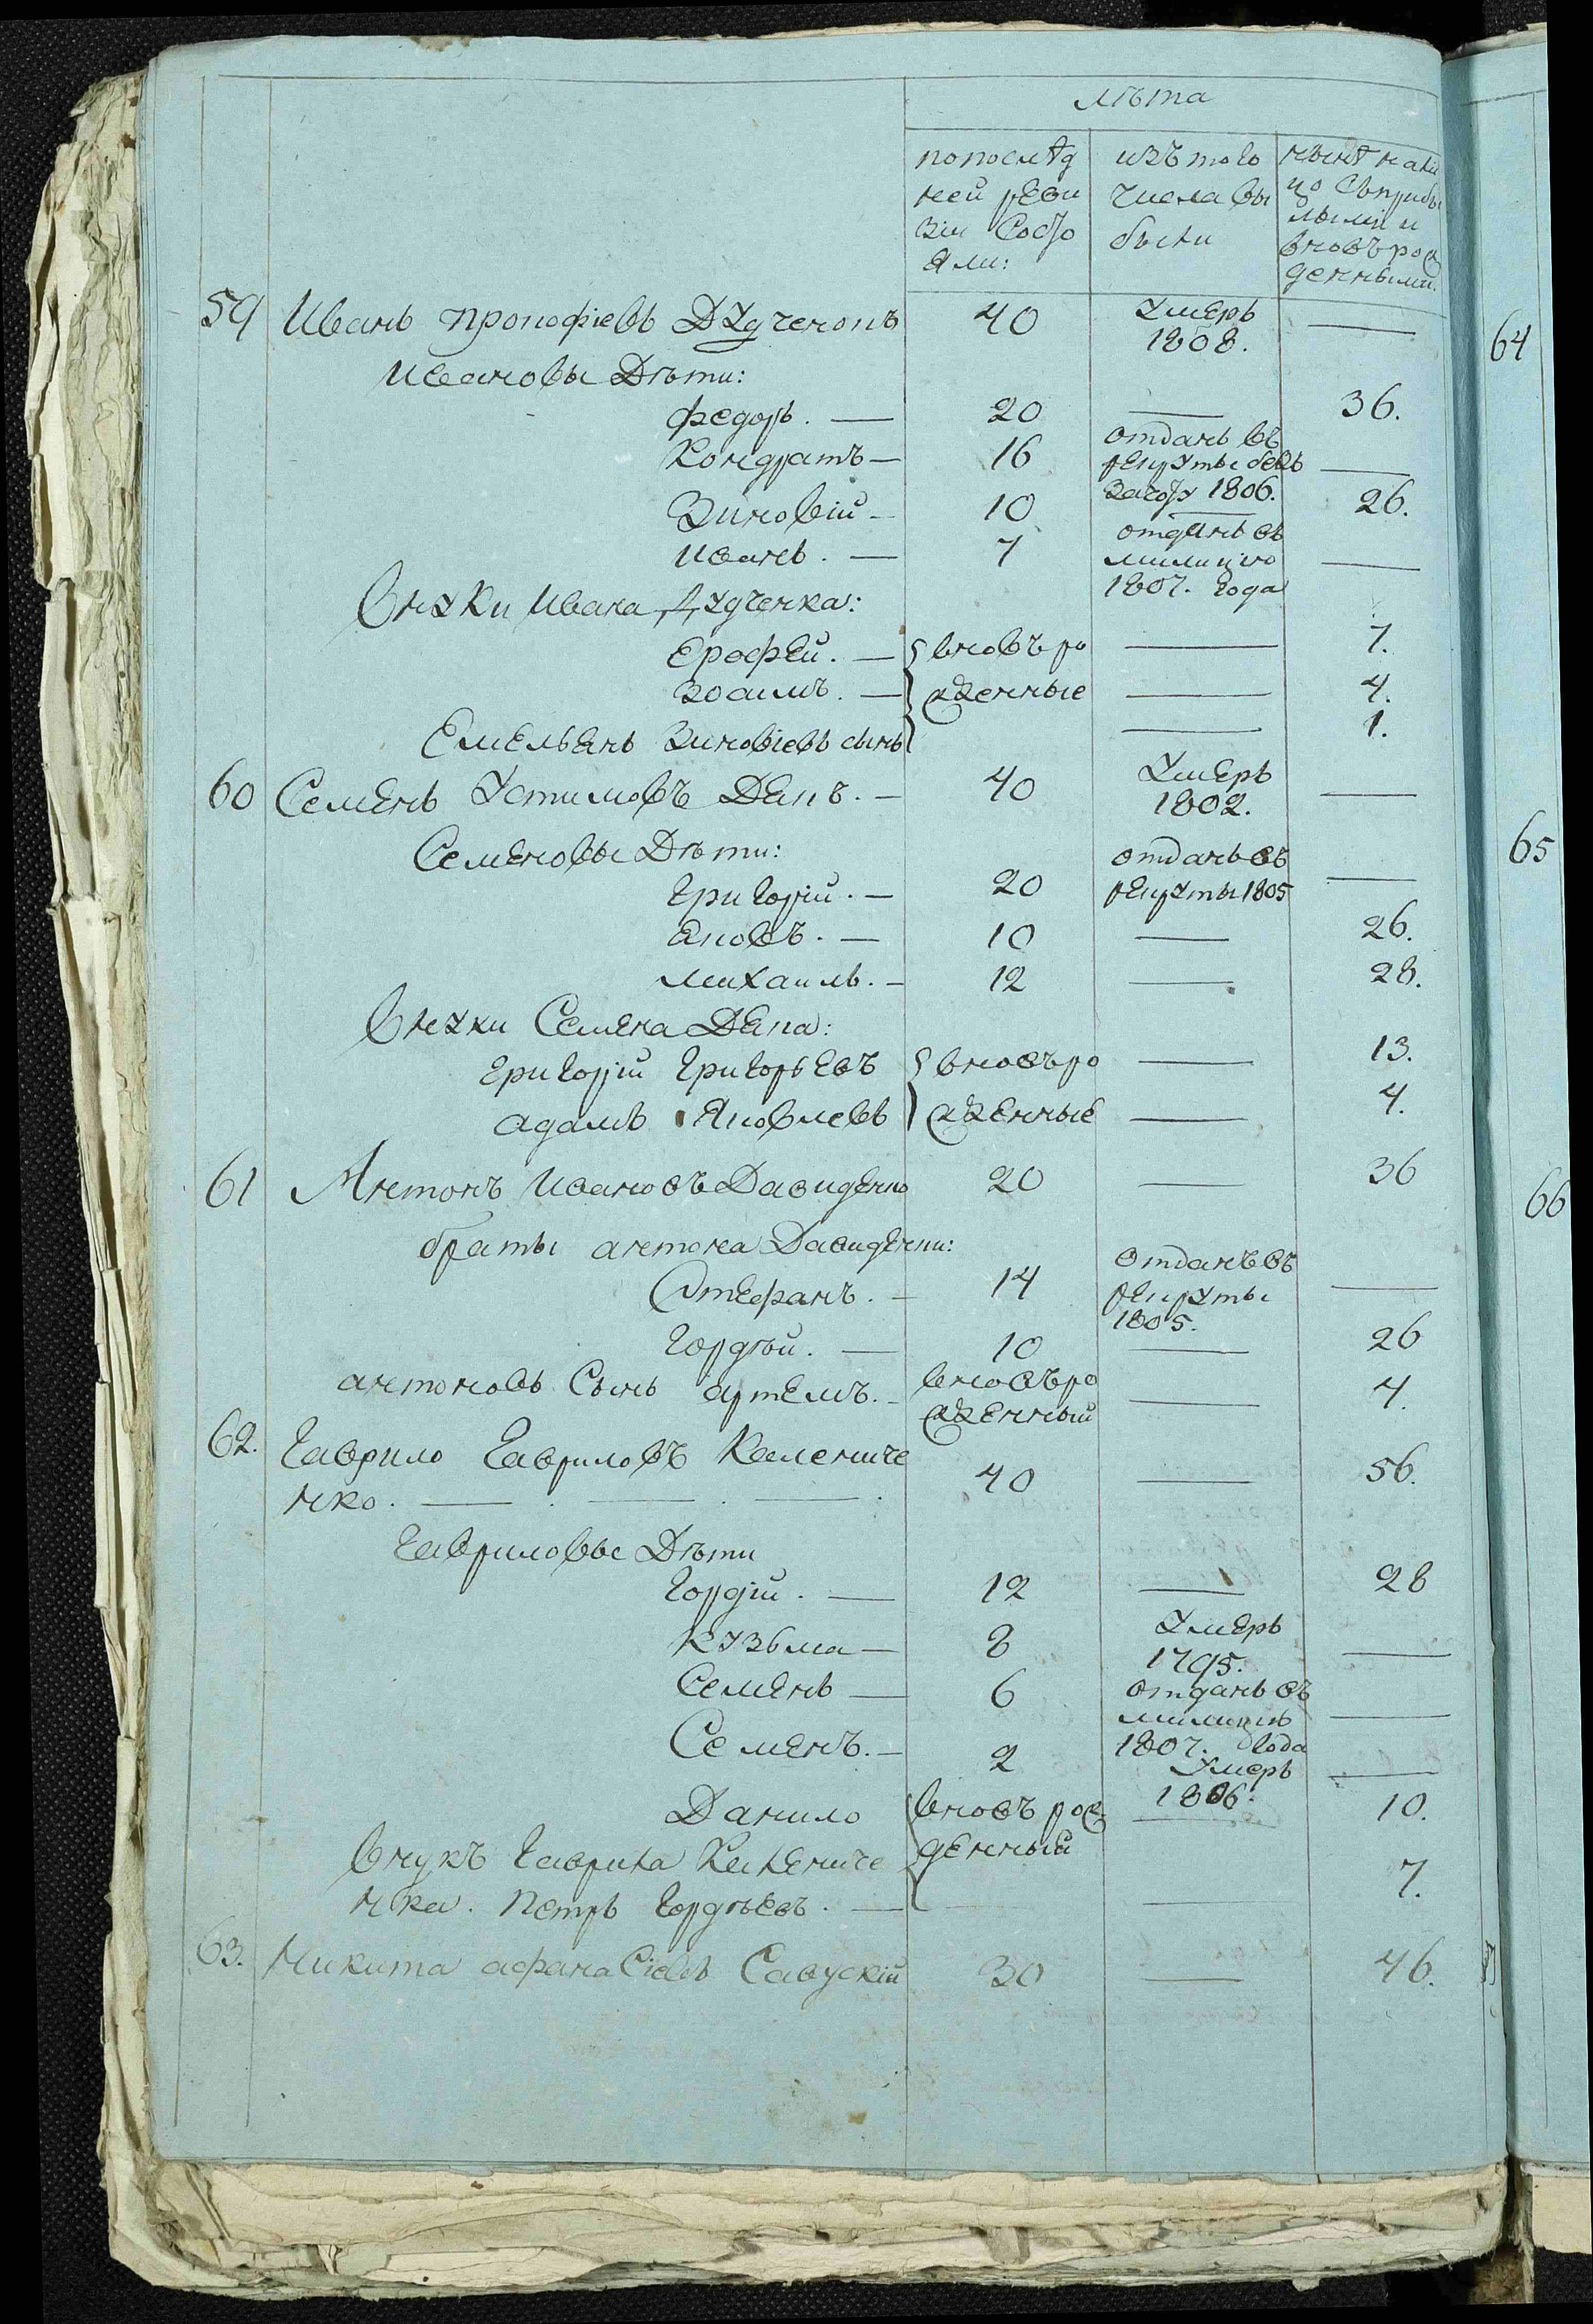 лѣта
попослѣд изъ того нынѣ нали
ней реви числа вы цо съприбы
зіи Состо были лыми и
яли: вновърож
денными.
59 Иванъ прокофіевъ Дудченокъ 40 Умеръ 1808. —
Ивановы Дѣти:
федоръ. — 20 — 36.
Кондратъ — 16 отданъ въ рекруты безъ зачоту 1806. —
Зиновій — 10 — 26.
иванъ. — 7 отданъ въ милицію 1807. года —
Внуки Ивана Дудченка:
Ерофей. — вновъро — 7.
зоамъ. — жденные — 4.
Емельянъ Зиновіевъ сынъ — 1.
60 Семенъ Устимовъ Декъ. — 40 Умеръ 1802. —
Семеновы Дѣти:
григорій. — 20 отданъ въ рекруты 1805 —
яковъ. — 10 — 26.
михаилъ. — 12 — 28.
Внуки Семена Дека:
григорій григорьевъ вновъро — 13.
адамъ Яковлевъ жденные — 4.
61 Антонъ ивановъ Давиденко 20 — 36
браты антона Давиденки:
Стефанъ. — 14 отданъ въ рекруты 1805. —
гордѣй. — 10 — 26
антоновъ Сынъ артемъ. — вновъро жденный — 4.
62. гаврило гавриловъ Калениче 40 — 56.
нко. — . — . — .
гавриловы Дѣти
гордій. — 12 — 28
кузьма — 8 Умеръ 1795. —
Семенъ — 6 отданъ въ милицію 1807. года —
Семенъ. — 2 Умеръ 1806. —
Данило вновъ рож — 10.
внукъ гаврила Каллениче денный
нка. петръ гордѣевъ. — — 7.
63. Никита афанасіевъ Савускій 30 — 46.
64
65
66